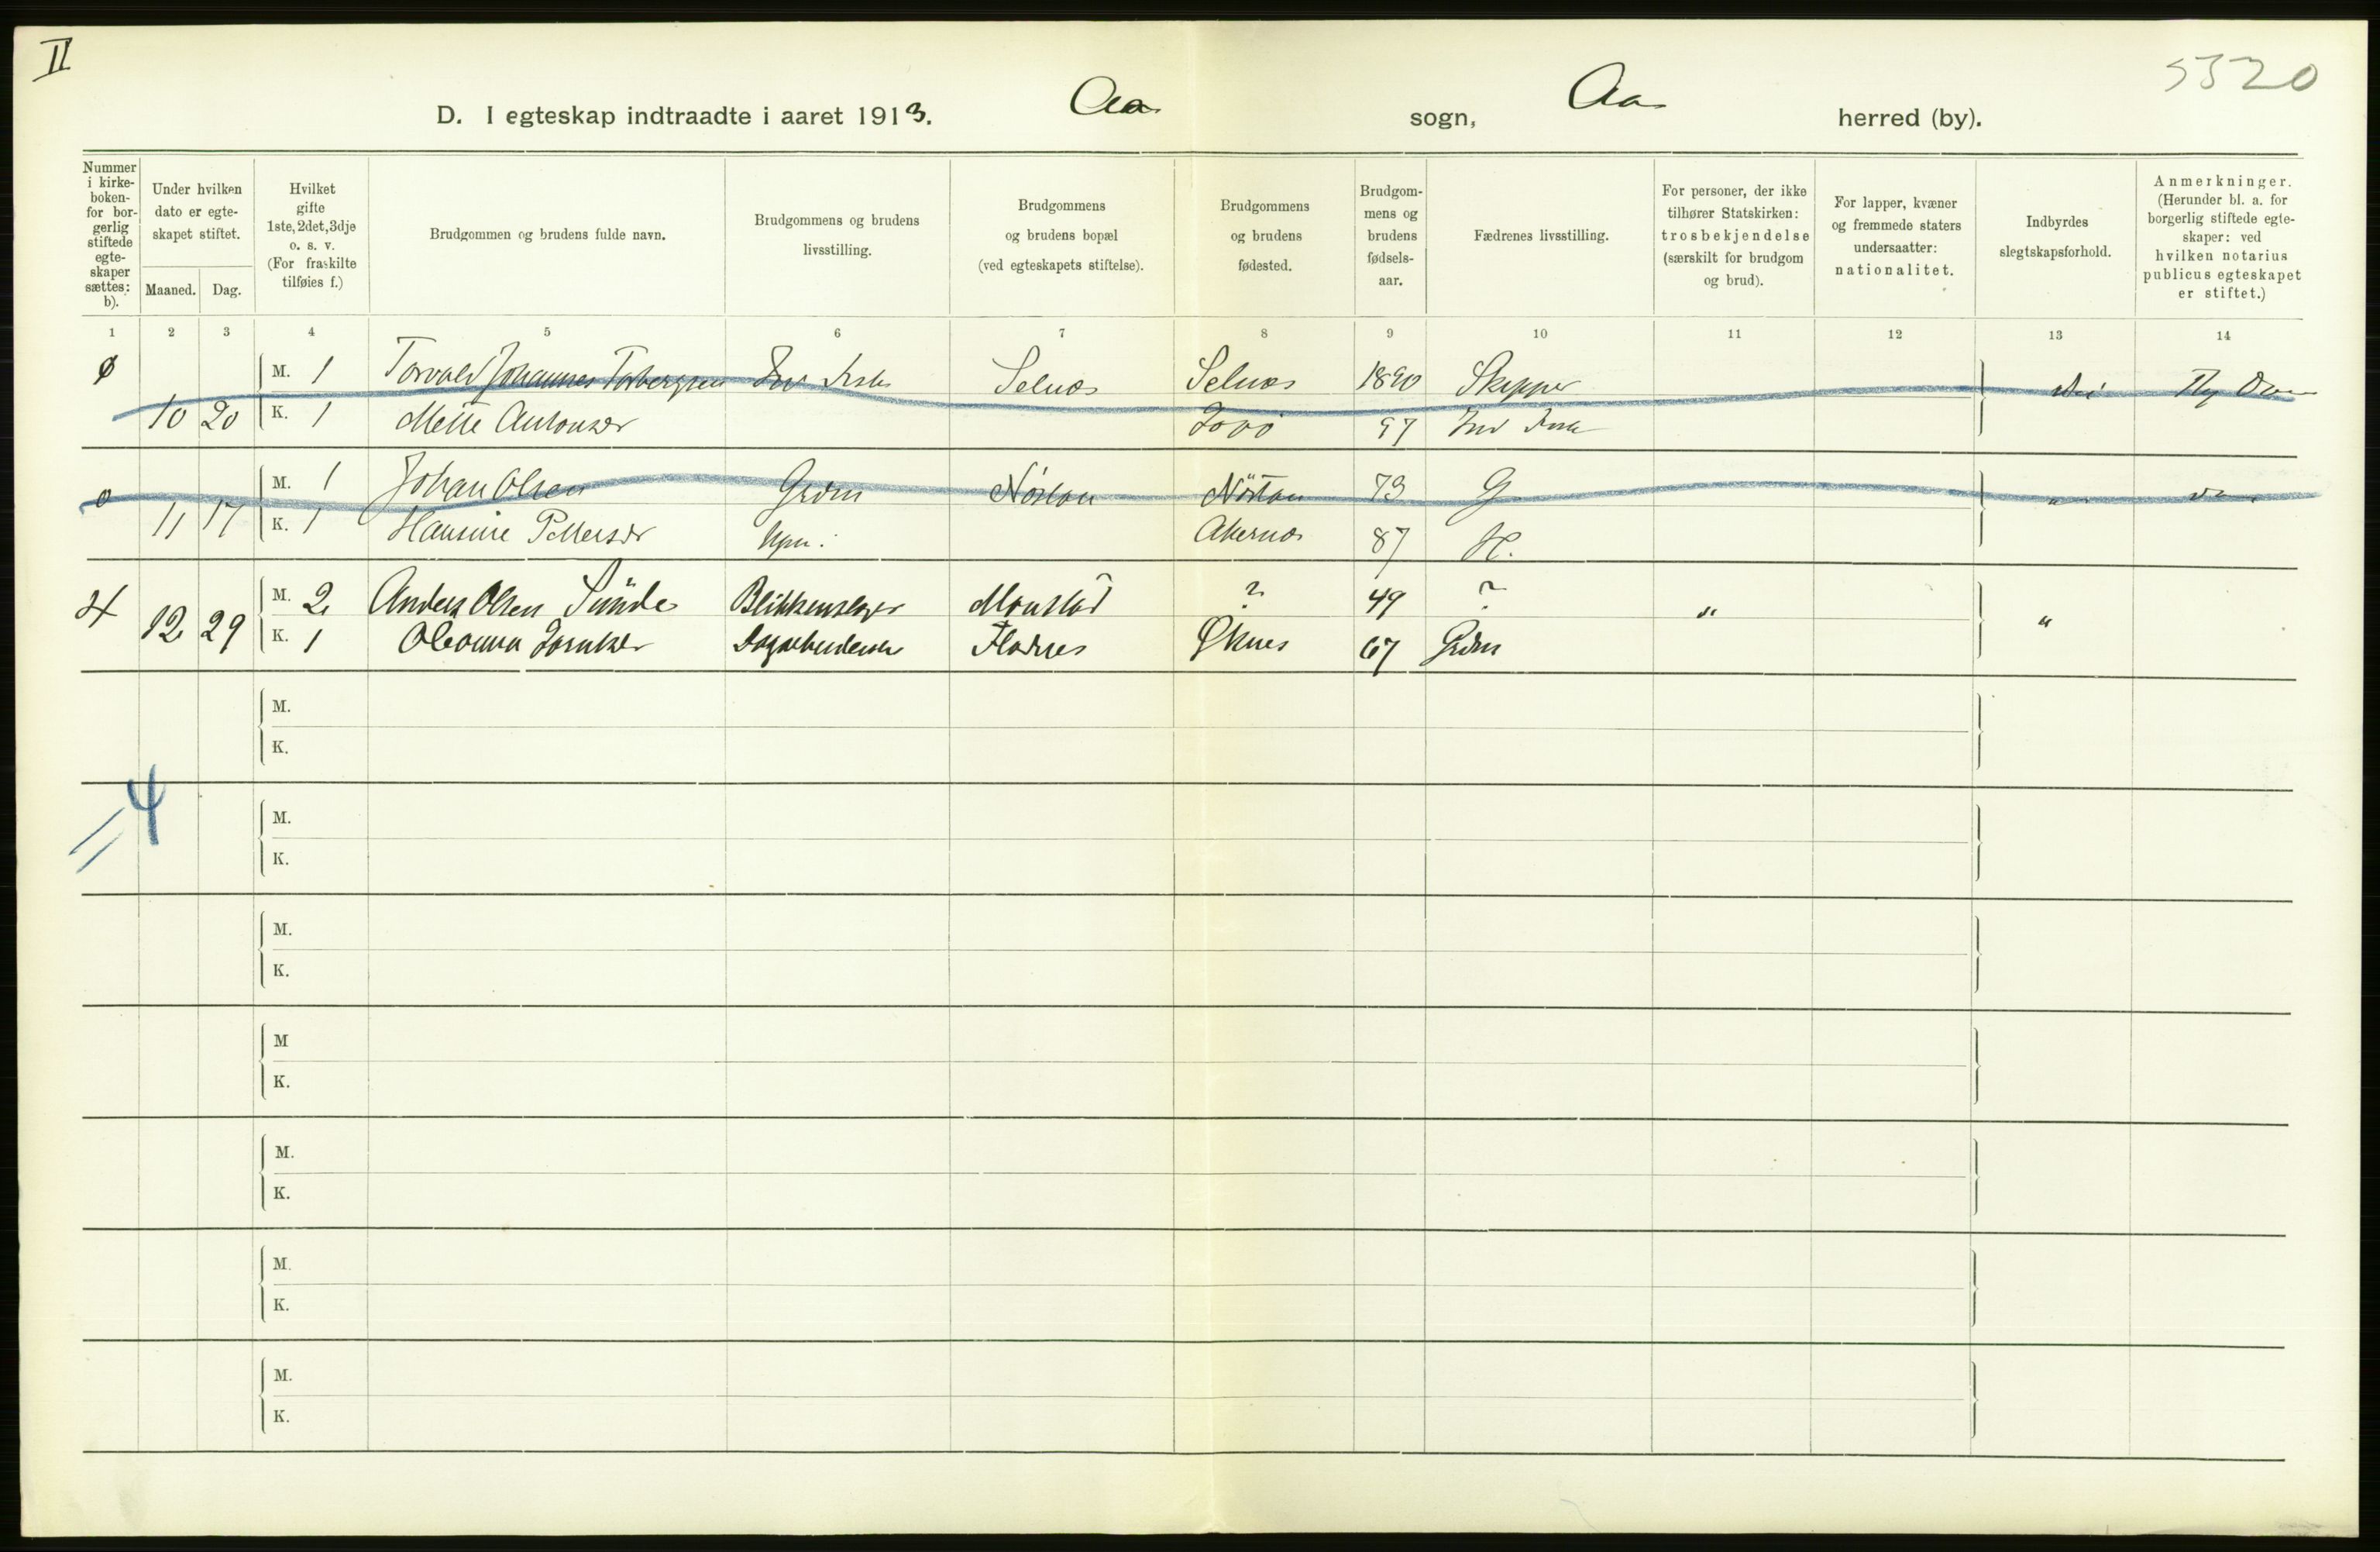 II
5320
D. I egteskap indtraadte i aaret 1913. Aa sogn, Aa herred (by).
Nummer i kirkeboken- for borgerlig stiftede egteskaper sættes: b).
Under hvilken dato er egteskapet stiftet.
Maaned. Dag.
Hvilket gifte 1ste, 2det, 3dje o. s. v. (For fraskilte tilføies f.)
Brudgommen og brudens fulde navn.
Brudgommens og brudens livsstilling.
Brudgommens og brudens bopæl (ved egteskapets stiftelse).
Brudgommens og brudens fødested.
Brudgommens og brudens fødselsaar.
Fædrenes livsstilling.
For personer, der ikke tilhører Statskirken: trosbekjendelse (særskilt for brudgom og brud).
For lapper, kvæner og fremmede staters undersaatter: nationalitet.
Indbyrdes slegtskapsforhold.
Anmerkninger. (Herunder bl. a. for borgerlig stiftede egteskaper: ved hvilken notarius publicus egteskapet er stiftet.)
1 2 3 4 5 6 7 8 9 10 11 12 13 14
M. 1 Torvald Johannes Torbergsen Selnæs Selnæs 1890 Skipper
10 20 K. 1 Mette Antonsen 97
M. 1 Johan Olsen Grdm 73 G
11 17 K. 1 Hansine Pettersen 87 H.
4 12 29 M. 2 Anders Olsen Sünde Blikkenslager ? 49 ? " "
K. 1 Oleanna Øknes 67 Grdm
M.
K.
= 4
M.
K.
M.
K.
M
K.
M.
K.
M.
K.
M.
K.